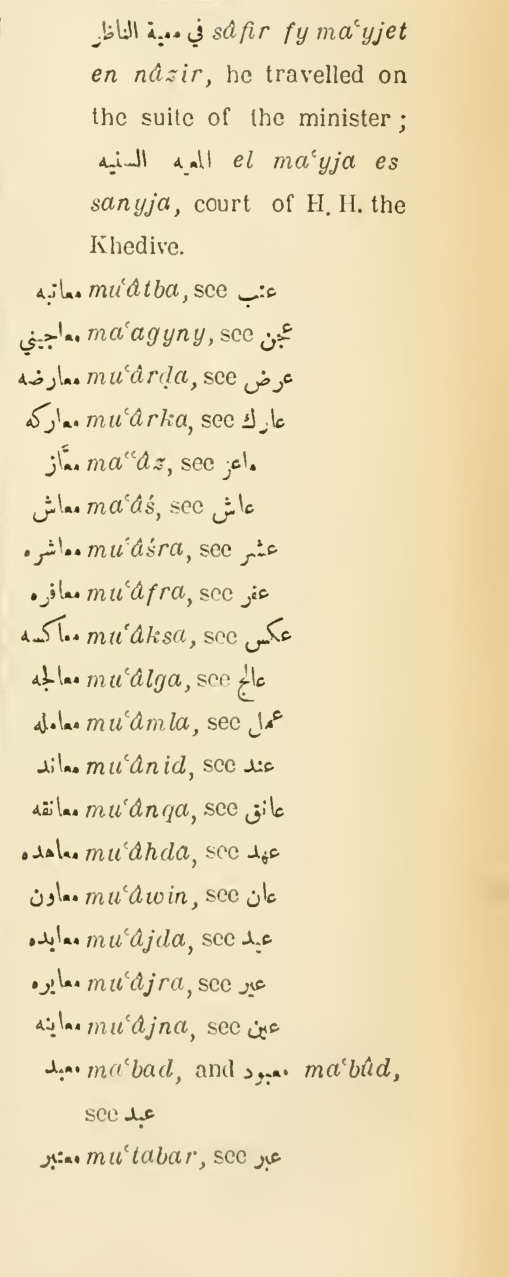 في معية الناظر sâfir fy maʿyjet
en nâzir, he travelled on
the suite of the minister;
المعيه السنيه el maʿyja es
sanyja, court of H. H. the
Khedive.
معاتبه muʿâtba, see عتب
معاجيني maʿagyny, see عجن
معارضه muʿârḍa, see عرض
معاركه muʿârka, see عارك
معَّاز maʿʿâz, see ماعز
معاش maʿâś, see عاش
معاشره muʿâśra, see عشر
معافره muʿâfra, see عفر
معاكسه muʿâksa, see عكس
معالجه muʿâlga, see عالج
معامله muʿâmla, see عمل
معاند muʿânid, see عند
معانقه muʿânqa, see عانق
معاهده muʿâhda, see عهد
معاون muʿâwin, see عان
معايده muʿâjda, see عيد
معايره muʿâjra, see عير
معاينه muʿâjna, see عين
معبد maʿbad, and معبود maʿbûd,
see عبد
معتبر muʿtabar, see عبر